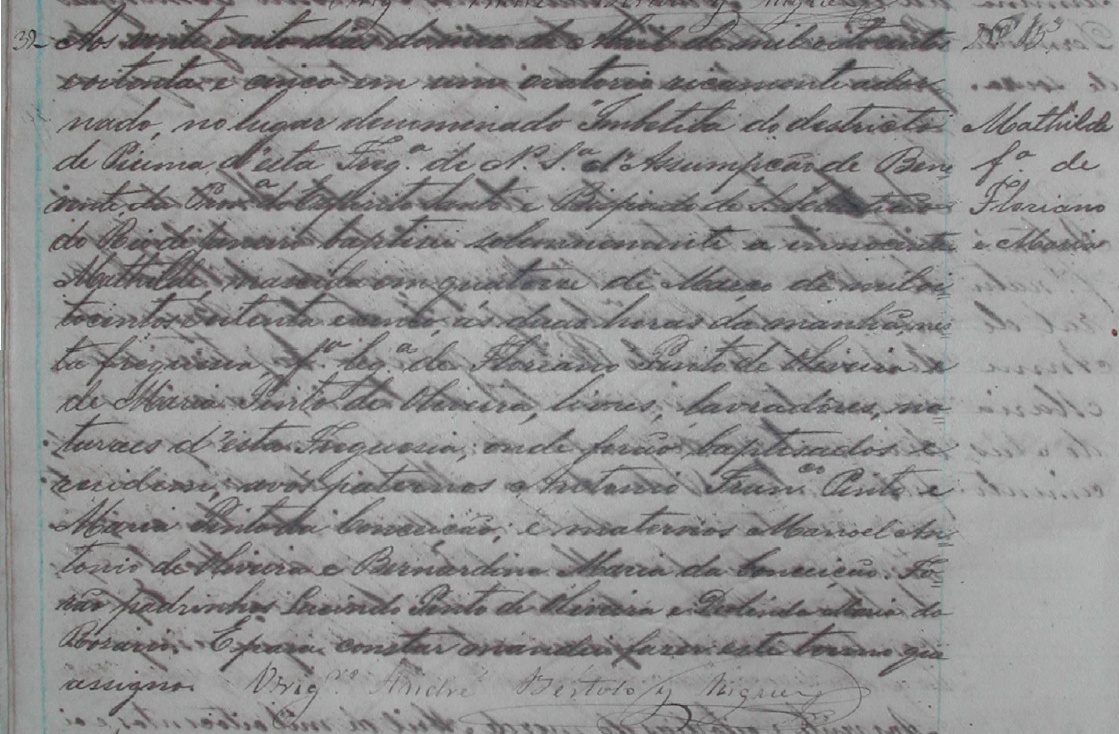 Aos vinte oito dias do mez de Abril de mil oitocentos
e oitenta e cinco em um oratorio ricamente ador-
nado, no lugar denominado Imbetiba do destricto
de Piuma, d'esta Freg.ª de N. S.ª d'Assumpção de Bene
vente, da Prov.ª do Espirito Santo e Bispado de S. Sebastião
do Rio de Janeiro baptisei solemnemente a innocente
Mathilde, nascida em quatorze de Março de mil oi=
tocentos oitenta e cinco, as duas horas da manhã, nes=
ta freguesia, f.ª leg.ª de Floriano Pinto de Oliveira e
de Maria Pinto de Oliveira, livres, lavradores, na=
turaes d'esta Freguesia, onde forão baptisados e
residem; avós paternos Antonio Fran.co Pinto e
Maria Pinto da Conceição, e maternos Manoel An=
tonio de Oliveira e Bernardina Maria da Conceição. Fo=
rão padrinhos Lucindo Pinto de Oliveira e Deolinda Maria do
Rosario. E para constar mandei fazer este termo que
assigno. Vrig.ro André Bertolo y Niguez
Nº 15
Mathilde
f.ª de
Floriano
e Maria